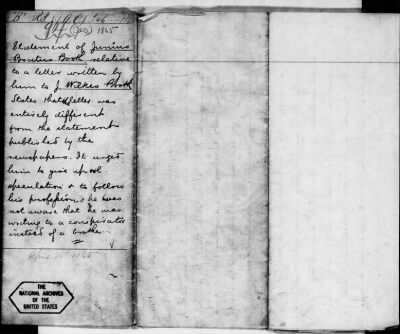 1865
Statement of Junius
Brutus Booth relative
to a letter written by
him to J. Wilkes Booth
States that letter was
entirely different
from the statement
published by the
newspapers. It urged
him to give up oil
speculation & to follow
his profession, & he was
not aware that he was
writing to a conspirator
instead of a brother.
THE
NATIONAL ARCHIVES
OF THE
UNITED STATES